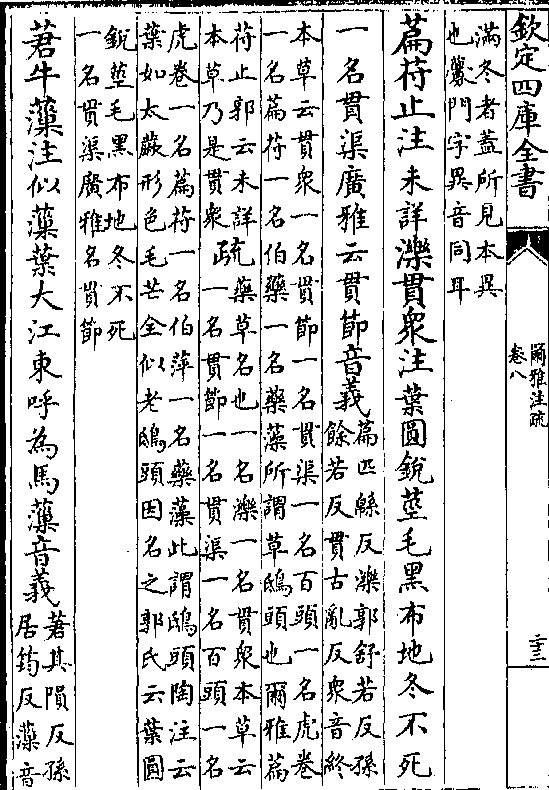 欽定四庫全書
爾雅注疏
卷八
二三
滿冬者蓋所見本異
也虋門字異音同耳
萹苻止注未詳濼貫衆注葉圓銳莖毛黑布地冬不死
一名貫渠廣雅云貫節音義
萹匹緜反濼郭舒若反孫
餘若反貫古亂反衆音終
本草云貫衆一名貫節一名貫渠一名百頭一名虎卷
一名萹苻一名伯藥一名藥藻所謂草鴟頭也爾雅萹
苻止郭云未詳
本草乃是貫衆
疏
藥草名也一名濼一名貫衆本草云
一名貫節一名貫渠一名百頭一名
虎卷一名萹苻一名伯萍一名藥藻此謂鴟頭陶注云
葉如太蕨形色毛芒全似老鴟頭因名之郭氏云葉圓
銳莖毛黑布地冬不死
一名貫渠廣雅名貫節
莙牛薻注似薻葉大江東呼為馬薻音義
莙其隕反孫
居筠反薻音